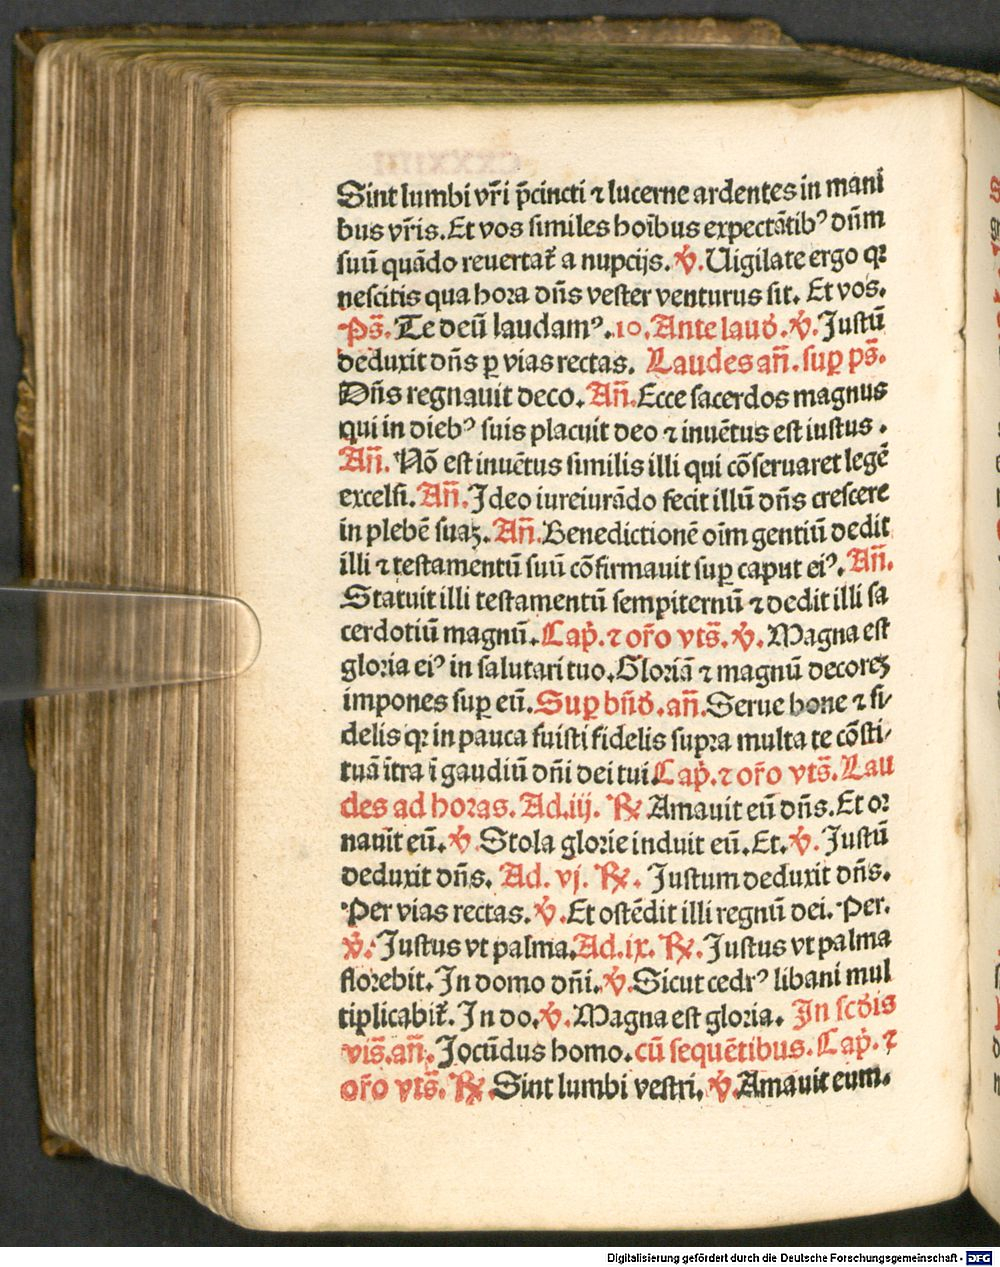 Sint lumbi vr̄i p̄cincti ⁊ lucerne ardentes in mani
bus vr̄is. Et vos similes hoı̄bus expectātibꝰ dn̄m
suū quādo reuertat̄ a nupcijs. v̇. Uigilate ergo qꝛ
nescitis qua hora dn̄s vester venturus sit. Et vos.
Ps̄. Te deū laudamꝰ. 10. Ante laud̄. v̇. Justū
deduxit dn̄s ꝑ vias rectas. Laudes an̄. suꝑ ps̄.
Dn̄s regnauit deco. An̄. Ecce sacerdos magnus
qui in diebꝰ suis placuit deo ⁊ inuētus est iustus.
An̄. Nō est inuētus similis illi qui cōseruaret legē
excelsi. An̄. Jdeo iureiurādo fecit illū dn̄s crescere
in plebē suaꝫ. An̄. Benedictionē oı̄m gentiū dedit
illi ⁊ testamentū suū cōfirmauit suꝑ caput eiꝰ. An̄.
Statuit illi testamentū sempiternū ⁊ dedit illi sa
cerdotiū magnū. Cap̄. ⁊ or̄o vts̄. v̇. Magna est
gloria eiꝰ in salutari tuo. Gloriā ⁊ magnū decoreꝫ
impones suꝑ eū. Suꝑ bn̄d̄. an̄. Serue bone ⁊ fi/
delis qꝛ in pauca fuisti fidelis supra multa te cōsti/
tuā ı̄tra ı̄ gaudiū dn̄i dei tui Cap̄. ⁊ or̄o vts̄. Lau
des ad horas. Ad. iij. ℟ Amauit eū dn̄s. Et or
nauı̄t eū. v̇. Stola glorie induit eū. Et. v̇. Justū
deduxit dn̄s. Ad. vj. ℟. Justum deduxit dn̄s.
Per vias rectas. v̇. Et ostēdit illi regnū dei. Per.
v̇. Justus vt palma. Ad. ix. ℟. Justus vt palma
florebit. Jn domo dn̄i. v̇. Sicut cedrꝰ libani mul
tiplicabit̄. Jn do. v̇. Magna est gloria. Jn scd̄is
vis̄. an̄. Jocūdus homo. cū sequētibus. Cap̄. ⁊
or̄o vts̄. ℟. Sint lumbi vestri. v̇. Amauit eum.
Digitalisierung gefördert durch die Deutsche Forschungsgemeinschaft - DFG